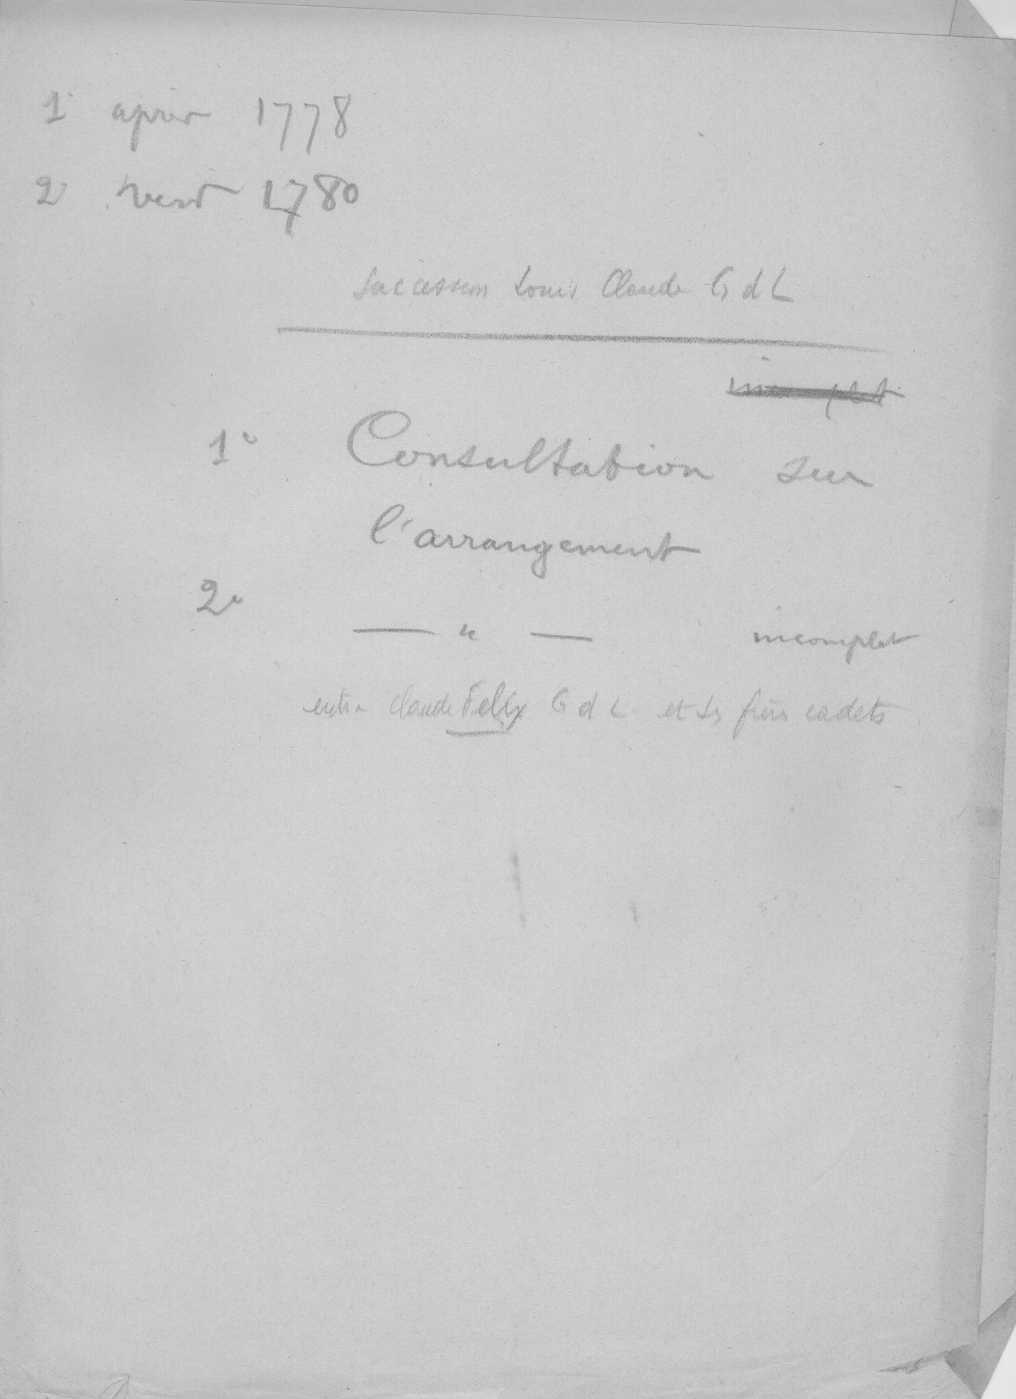 1° après 1778
2° vers 1780
Succession Louis Claude G d L
incomplet
1° Consultation sur
l'arrangement
2° — " — incomplet
entre Claude Felix G d L et ses frères cadets